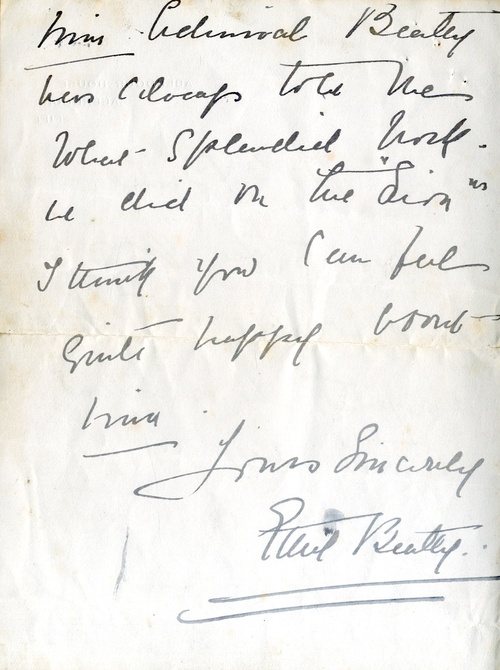 him Admiral Beatty
has always told me
what splendid work
he did on the "Lion"
I think you can feel
quite happy about
him
Yours Sincerely
Ethel Beatty.